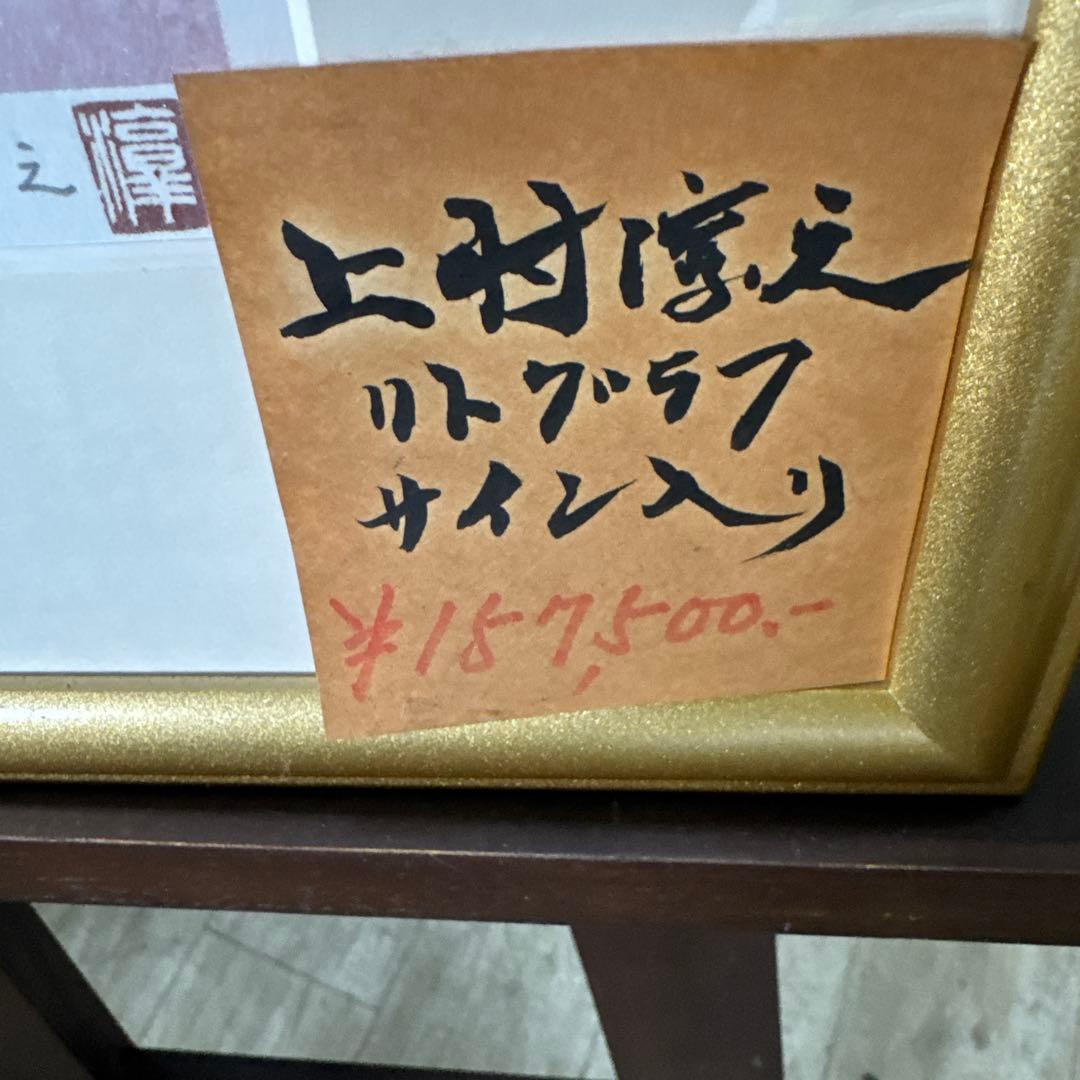 之 淳
上村淳之
リトグラフ
サイン入り
¥157,500.-